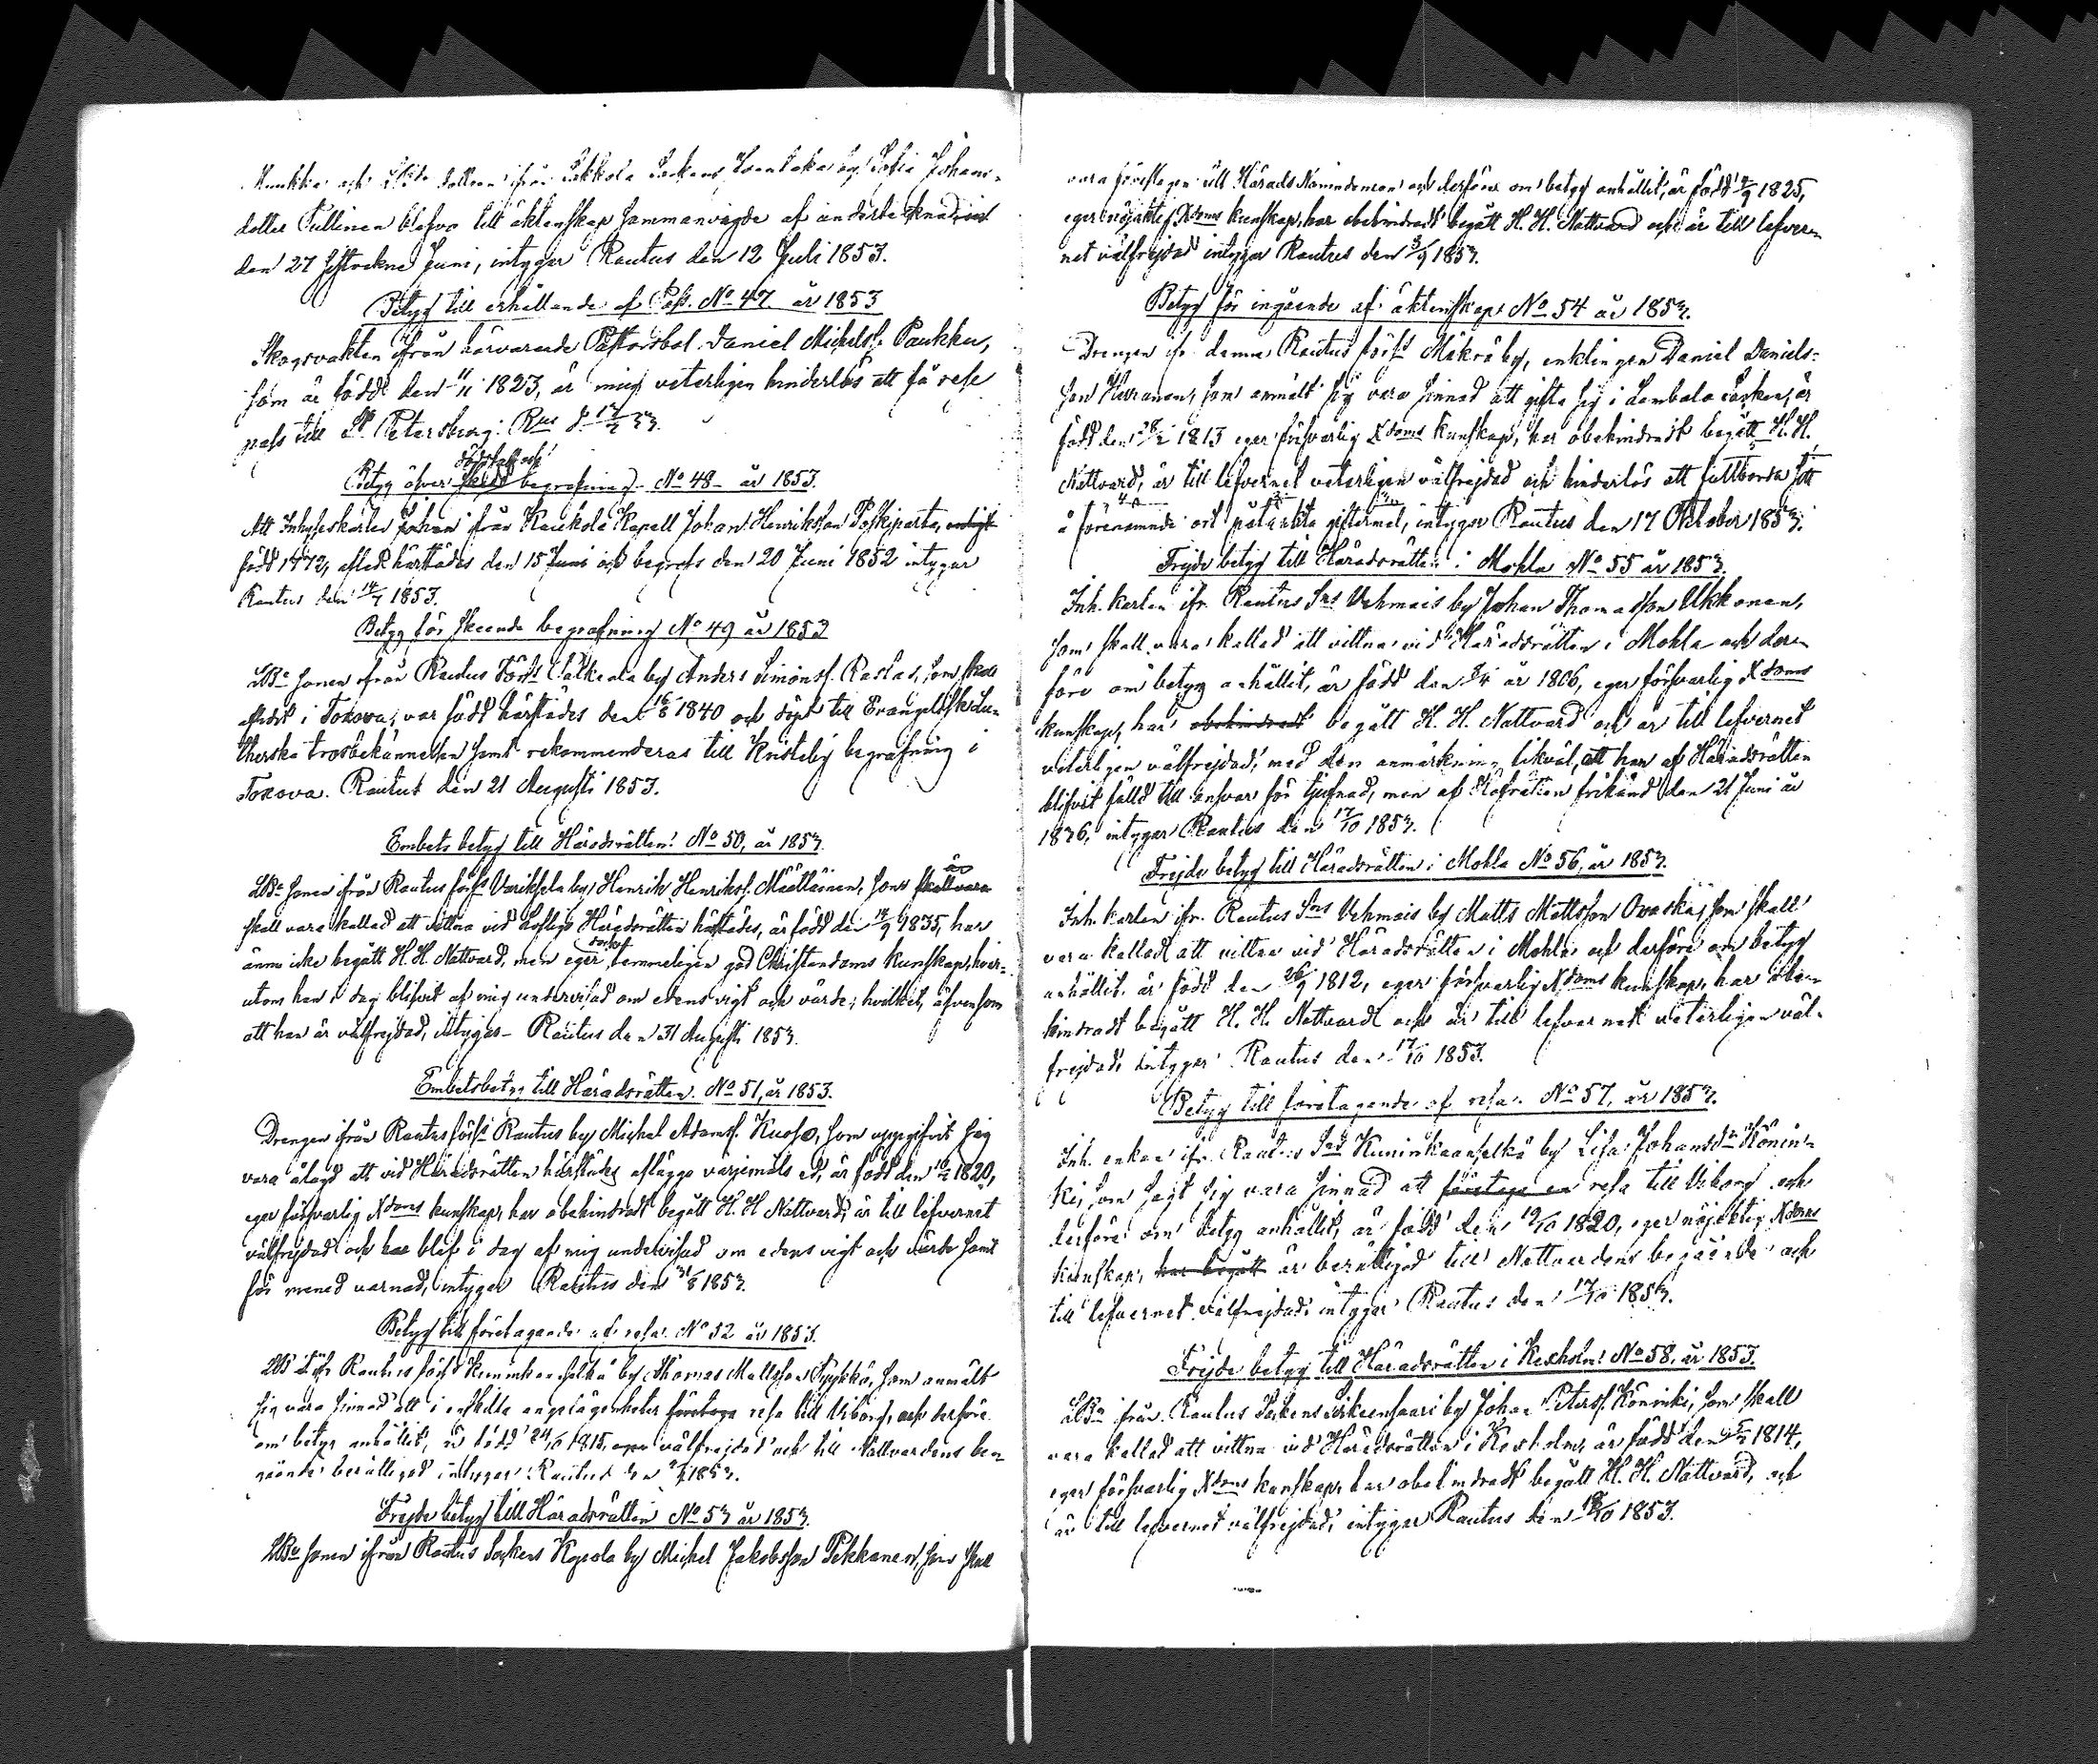 Munkka och ifrån Sakkola Sockens by Sofia Johans-
dotter Tullinen blefvo till äktenskap sammanvigde af undertecknad
den 27 sistvekne Juni, intygar Rautus den 12 Juli 1853.
Betyg till erhållande af Pass. No 47 år 1853
Skogsvakten ifrån härvarande Pastorsbol Daniel Michelss. Paukku,
som är född den 1823, är mig veterligen hinderlös att få rese
pass till St Petersburg: Rus d.
dödsfall och
Betyg öfver skedd begrafning No 48 år 1853.
Att Inhyseskarlen Johan från Kaukola Kapell Johan Henriksson Poskiparta, enligt
född 1772, afled härstädes den 15 Juni och begrofs den 20 Juni 1852 intygar
Rautus den 14/7 1853.
Betyg för skeende begrafning No 49 år 1853
LBde sonen ifrån Rautus Socks Palkeala by Anders Simonss. Rastas, som skall
aflidit i Toxova, var född härstädes den 16/8 1840 och döpt till Evangelisk Lu-
therska trosbekännelsen samt rekommenderas till Kristelig begrafning i
Toxova. Rautus den 21 Augusti 1853.
Embets betyg till Häradsrätten No 50, år 1853.
är
LBde sonen ifrån Rautus socks Variksela by Henrik Henrikss. Määttäinen, som skall vara
skall vara kallad att vittna vid Lofliga Häradsrätten härstädes, är född den 14/9 1835, har
ännu icke begått H.H. Nattvard, men eger temmeligen god Christendoms kunskap, hvar-
utom han i dag blifvit af mig undervisad om edens vigt och värde; hvilket, äfvensom
att han är välfrejdad, intygas Rautus den 31 Augusti 1853.
Embetsbetyg till Häradsrätten No 51, år 1853.
Drengen ifrån Rautus socks Rautus by Michel Adamss. Kuosa, som uppgifvit sig
vara ålagd att vid Häradsrätten härstädes aflägga värjemåls ed, är född den 1820,
eger försvarlig Xdoms kunskap, har obehindradt begått H.H Nattvard, är till lefvernet
välfrejdad och har blef i dag af mig undervisad om edens vigt och värde samt
för mened varnad, intygar Rautus den 31/8 1853.
Betyg till företagande af resa No 52 år 1853.
LBd ifr Rautus socks Kuninkaanselkä by Thomas Mattsson Pykkö, som anmält
sig vara sinnad att i enskilda angelägenheter företaga resa till Viborg, och derföre
om betyg anhållit, är född 24/10 1815, eger välfrejdad och till Nattvardens be-
gående berättigad intygar Rautus den 1853.
Frejde betyg till Häradsrätten No 53 år 1853.
LBde sonen ifrån Rautus Sockens Kopsala by Michel Jakobsson Pekkanen, som skall
vara föreslagen till Härads Nämndeman och derföre om betyg anhållit, är född 1825,
eger nöjaktig Xdoms kunskap, har obehindradt begått H.H. Nattvard och är till lefver-
net välfrejdad intygar Rautus den 3/9 1853.
Betyg för ingående af äktenskap No 54 år 1853.
Drengen ifr. denne Rautus socks Mäkrä by, enklingen Daniel Daniels-
son Kuranen, som anmält sig vara sinnad att gifta sig i Lembala Socken, är
född den 1813 eger försvarlig Xdoms kunskap, har obehindradt begått H.H.
Nattvard, är till lefvernet veterligen välfrejdad och hinderlös att fullborda sitt
å förenämnde ort påtänkta giftermål, intygar Rautus den 17 Oktober 1853.
Frejde betyg till Häradsrätten i Mohla No 55 år 1853.
Inh. karlen ifr. Rautus Sns Vehmais by Johan Thomasson Ukkonen,
som skall vara kallad att vittna vid Häradsrätten i Mohla och der-
före om betyg anhållit, är född den år 1806, eger försvarlig Xdoms
kunskap, har obehindradt begått H.H. Nattvard och är till lefvernet
veterligen välfrejdad, med den anmärkning likväl, att han af Häradsrätten
blifvit fälld till ansvar för tjufnad, men af Hofrätten frikänd den 21 Juni år
1836, intygar Rautus den 17/10 1853.
Frejde betyg till Häradsrätten i Mohla No 56, år 1853.
Inh. karlen ifr. Rautus Sns Vehmais by Matts Mattsson Ovaska, som skall
vara kallad att vittna vid Häradsrätten i Mohla och derföre om betyg
anhållit. är född den 26/9 1812, eger försvarlig Xdoms kunskap, har obe-
hindradt begått H.H. Nattvard och är till lefvernet veterligen väl-
frejdad, intygar Rautus den 17/10 1853.
Betyg till företagande af resa. No 57, år 1853.
Inh. enkan ifr. Rautus Snd Kuninkaanselkä by Lisa Johansdr Könin-
ki, som sagt sig vara sinnad att företaga en resa till Viborg och
derföre om betyg anhållit, är född den 19/10 1820, eger nöjaktig Xdoms
kunskap, har begått är berättigad till Nattvardens begående och
till lefvernet välfrejdad, intygar Rautus den 17/10 1853.
Frejde betyg till Häradsrätten i Kexholm No 58, år 1853.
LBn ifrån Rautus Sockens Sirkiensaari by Johan Peterss. Köninki, som skall
vara kallad att vittna vid Häradsrätten i Kexholm, är född den 1814,
eger försvarlig Xdoms kunskap, har obehindradt begått H.H. Nattvard, och
är till lefvernet välfrejdad, intygar Rautus den 18/10 1853.